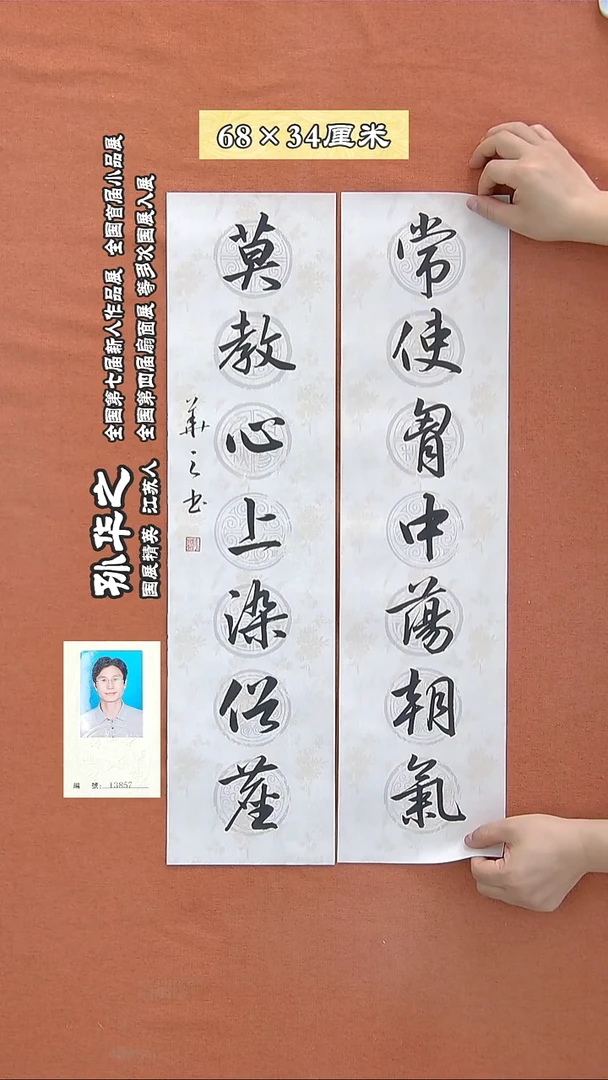 68×34厘米
常使胷中蕩朝氣
莫教心上染俗塵
華之书
孙华之
国展精英 江苏人
全国第七届新人作品展 全国首届小品展
全国第四届扇面展 等多次国展入展
編 號：13857